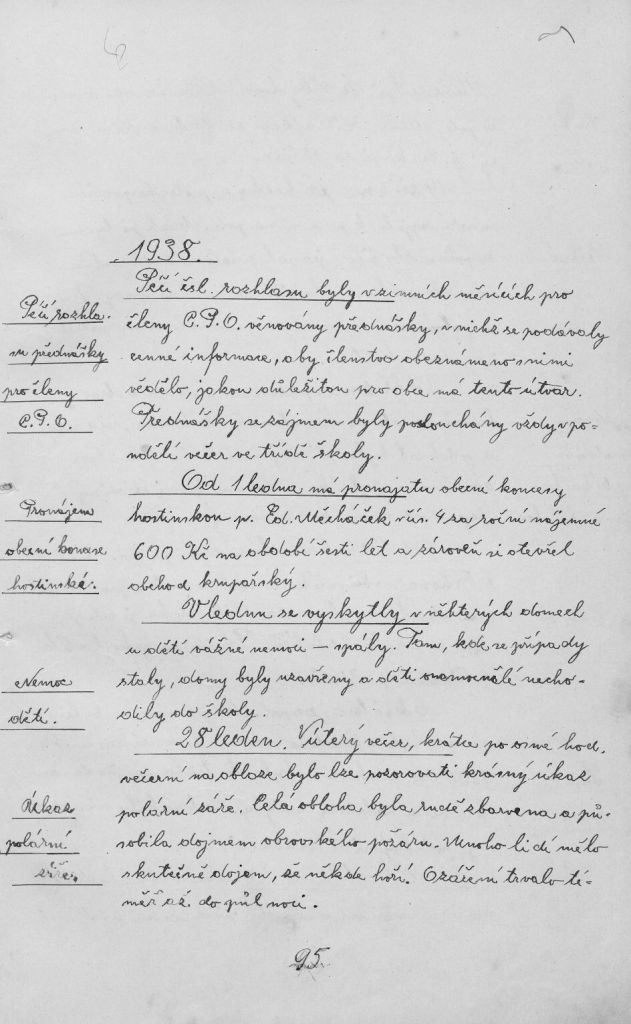 1938.
Péčí čsl. rozhlasu byly v zimních měsících pro
Péčí rozhla-
su přednášky
pro členy
C.P.O.
členy C.P.O. věnovány přednášky, v nichž se podávaly
cenné informace, aby členstvo obeznámeno s nimi
vědělo, jakou důležitou pro obce má tento útvar.
Přednášky se zájmem byly poslouchány vždy v po-
ndělí večer ve třídě školy.
Od 1 ledna má pronajatu obecní koncesy
Pronájem
obecní koncese
hostinské.
hostinskou p. Ed. Měcháček v čís. 4 za roční nájemné
600 Kč na období šesti let a zároveň si otevřel
obchod krupařský.
V lednu se vyskytly v některých domech
u dětí vážné nemoci – spály. Tam, kde se případy
Nemoc
dětí.
staly, domy byly uzavřeny a děti onemocnělé necho-
dily do školy.
28 leden. V úterý večer, krátce po osmé hod.
večerní na obloze bylo lze pozorovati krásný úkaz
Úkaz
polární
záře.
polární záře. Celá obloha byla rudě zbarvena a pů-
sobila dojmem obrovského požáru. Mnoho lidí mělo
skutečně dojem, že někde hoří. Ozáření trvalo té-
měř až do půl noci.
95.